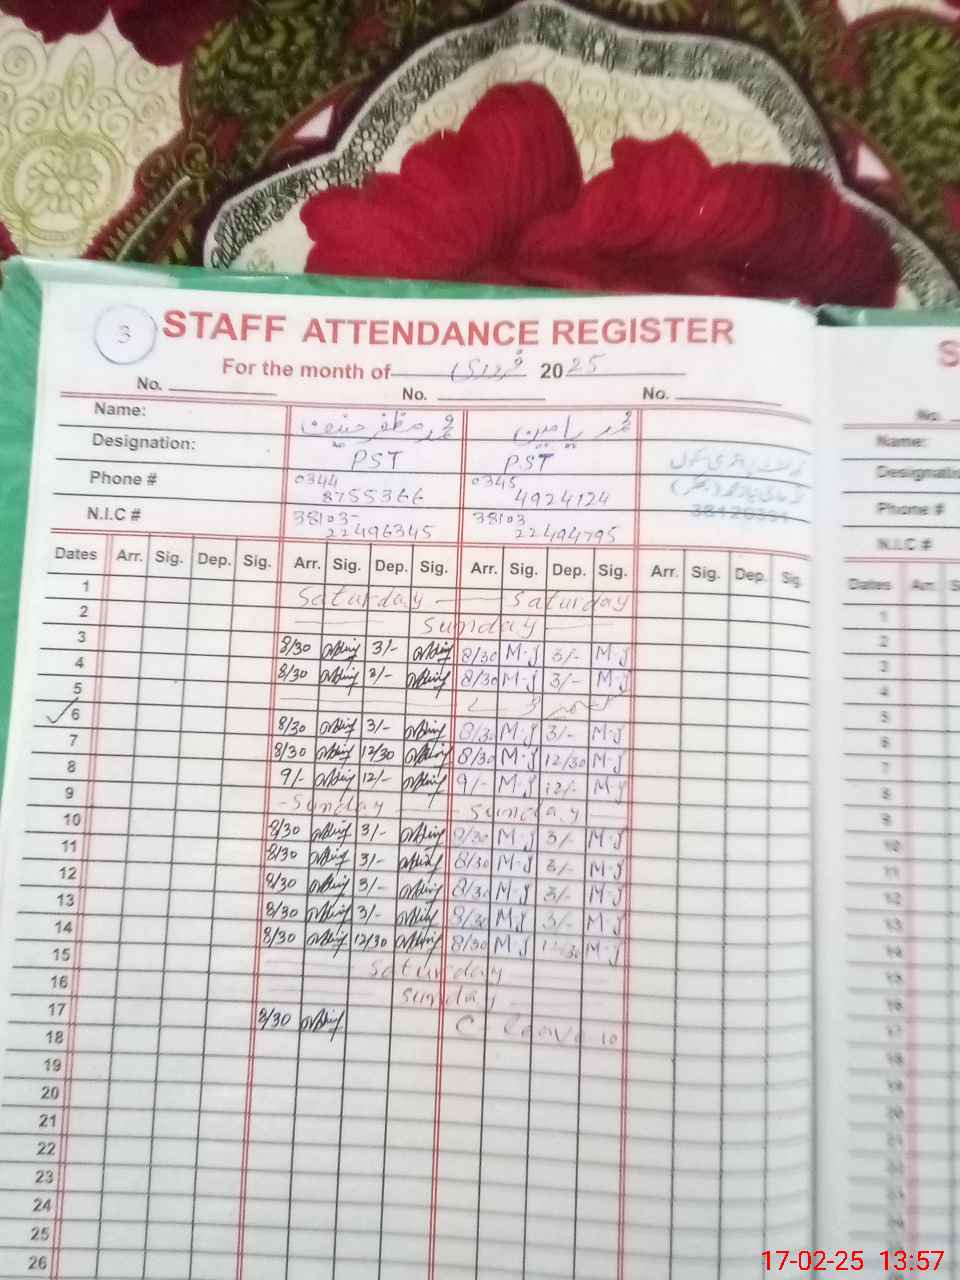 3
STAFF ATTENDANCE REGISTER
For the month of فروری 2025
No. No. No.
Name: محمد مظفر حنیف محمد یامین
Designation: PST PST
Phone # 0344 8755366 0345 4924124
N.I.C # 38103- 22496345 38103 22494795
Dates Arr. Sig. Dep. Sig. Arr. Sig. Dep. Sig. Arr. Sig. Dep. Sig. Arr. Sig. Dep. Sig.
1 Saturday Saturday
2 Sunday
3 8/30 3/- 8/30 M-J 3/- M-J
4 8/30 3/- 8/30 M-J 3/- M-J
5
6 8/30 3/- 8/30 M-J 3/- M-J
7 8/30 12/30 8/30 M-J 12/30 M-J
8 9/- 12/- 9/- M-J 12/- M-J
9 Sunday Sunday
10 8/30 3/- 8/30 M-J 3/- M-J
11 8/30 3/- 8/30 M-J 3/- M-J
12 8/30 3/- 8/30 M-J 3/- M-J
13 8/30 3/- 8/30 M-J 3/- M-J
14 8/30 12/30 8/30 M-J 12/30 M-J
15 Saturday
16 Sunday
17 8/30 C leave 10
18
19
20
21
22
23
24
25
26
S
No.
Name:
Designation
Phone #
N.I.C #
Dates Arr. S
1
2
3
4
5
6
7
8
9
10
11
12
13
14
15
16
17
18
19
17-02-25 13:57